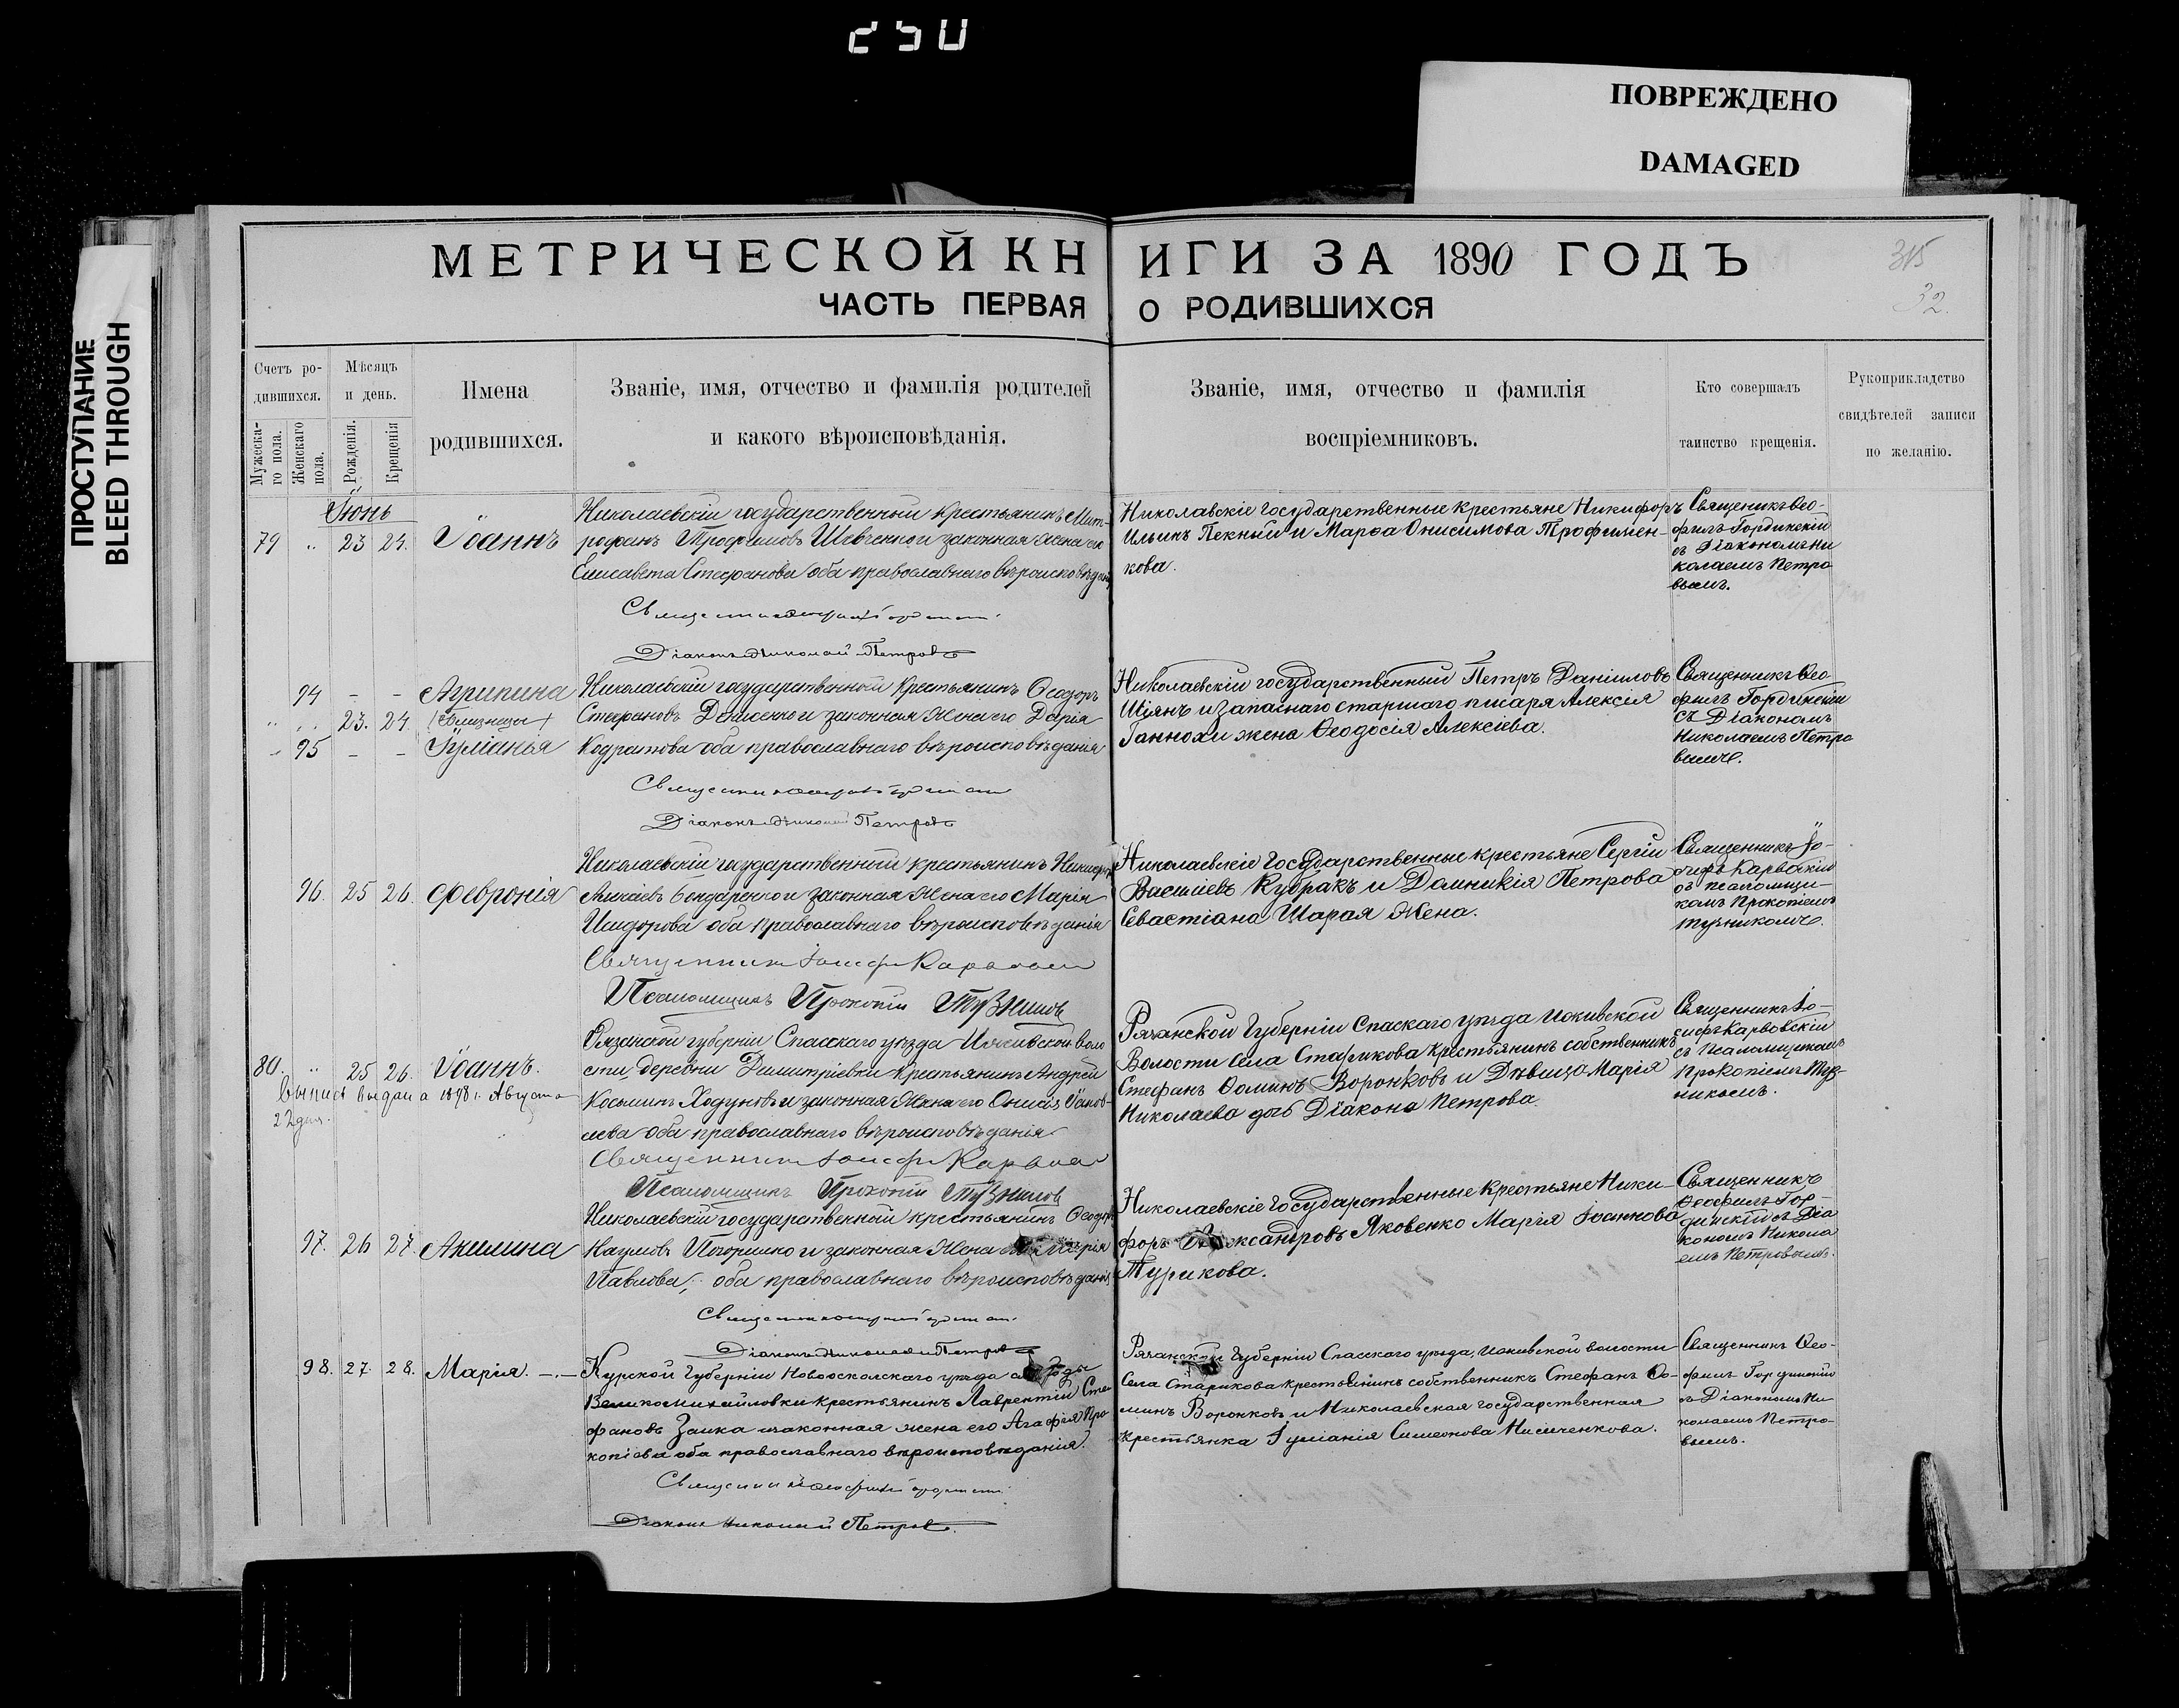 250
ПОВРЕЖДЕНО
DAMAGED
ПРОСТУПАНИЕ
BLEED THROUGH
МЕТРИЧЕСКОЙ КНИГИ ЗА 1890 ГОДЪ
315
32.
ЧАСТЬ ПЕРВАЯ О РОДИВШИХСЯ
Счетъ ро-
дившихся.
Мужеска-
го пола.
Женскаго
пола.
Мѣсяцъ
и день.
Рожденія.
Крещенія
Имена
родившихся.
Званіе, имя, отчество и фамилія родителей
и какого вѣроисповѣданія.
Званіе, имя, отчество и фамилія
воспріемниковъ.
Кто совершалъ
таинство крещенія.
Рукоприкладство
свидѣтелей записи
по желанію.
Іюнь
79 " 23 24. Іоаннъ
Николаевскій государственный крестьянинъ Мит-
рофанъ Трофимовъ Шевченко и законная жена его
Елисавета Стефанова оба православнаго вѣроисповѣданія
Діаконъ Николай Петровъ
Николавскіе государственные крестьяне Никифоръ
Ильинъ Пекный и Марѳа Онисимова Трофимен-
кова.
Священикъ Ѳео-
филъ Гординскій
съ Діакономъ Ни
колаемъ Петро
вымъ.
94 - - Агрипина
" " 23. 24. (близнецы)
" 95 - - Іуліанья
Николаевскій государственный крестьянинъ Ѳеодоръ
Стефановъ Денисенко и законная жена его Дарія
Кодратова оба православнаго вѣроисповѣданія
Діаконъ Николай Петровъ
Николаевскій государственный Петръ Даніиловъ
Шіянъ и запаснаго старшаго писаря Алексія
жена Ѳеодосія Алексіева.
Священникъ Ѳео
филъ Гординскій
съ Діакономъ
Николаемъ Петро
вымъ.
96. 25 26. Февронія
Николаевскій государственный крестьянинъ
Бондаренко и законная жена его Марія
Исидорова оба православнаго вѣроисповѣданія
Священникъ Іосифъ Карвовскій
Псаломщикъ Прокопій Тузниковъ
Николаевскіе государственные крестьяне Сергій
Василіевъ Кубракъ и Домникія Петрова
Севастіана Шарая жена.
Священникъ Іо-
сифъ Карвовскій
съ псаломщи-
комъ Прокопіемъ
Тузниковымъ.
80. " 25 26. Іоаннъ.
Выпись выдана 1898 г. Августа
22 дня.
Рязанской губерніи Спасскаго уѣзда Ижевской воло
сти, деревни Димитріевки крестьянинъ Андрей
Косминъ Ходуновъ и законная жена его Іаков-
лева оба православнаго вѣроисповѣданія
Священникъ Іосифъ Карвовскій
Псаломщикъ Прокопій Тузниковъ
Рязанской Губерніи Спаскаго уѣзда Ижевской
Волости села Старикова крестьянинъ собственникъ
Стефанъ Ѳоминъ Воронковъ и Дѣвица Марія
Николаева дочь Діакона Петрова.
Священникъ Іо-
сифъ Карвовскій
съ Псаломщикомъ
Прокопіемъ Туз-
никовымъ.
97. 26 27. Акилина
Николаевскій государственный крестьянинъ Ѳеодоръ
Наумовъ и законная жена его Марія
Павлова, оба православнаго вѣроисповѣданія
Діаконъ Николай Петровъ
Николаевскіе государственные крестьяне Ники-
форъ Александровъ Яковенко Марія Іоаннова
Турикова.
Священникъ
Ѳеофилъ Гор-
динскій съ Діа
кономъ Никола
емъ Петровымъ.
98. 27. 28. Марія.
Курской Губерніи Новооскольскаго уѣзда слободы
Великомихайловки крестьянинъ Лаврентій Сте
фановъ Заика и законная жена его Агафія Про
копіева оба православнаго вѣроисповѣданія.
Діаконъ Николай Петровъ.
Рязанской Губерніи Спасскаго уѣзда, Ижевской волости
Села Старикова крестьянинъ собственникъ Стефанъ Ѳо-
минъ Воронковъ и Николаевская государственная
крестьянка Іуліанія Симеонова Нисиченкова.
Священникъ Ѳео-
филъ Гординскій
съ Діакономъ Ни-
колаемъ Петро-
вымъ.